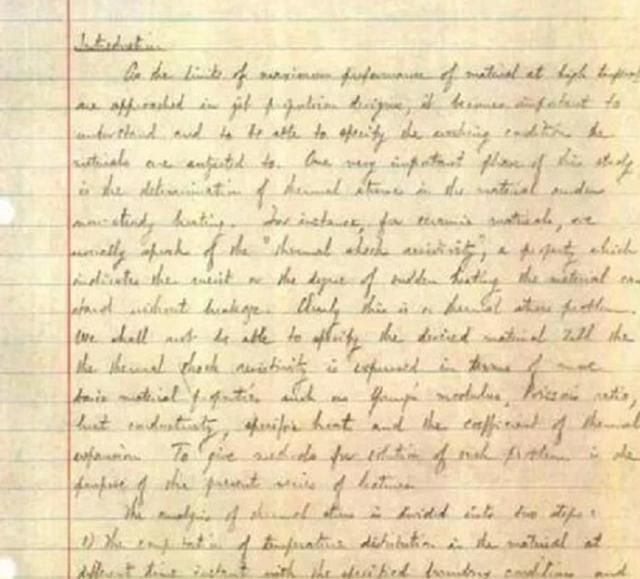 Introduction
As the limits of maximum performance of material at high
are approached in jet propulsion designs, it becomes important to
understand and to be able to specify the working condition the
materials are subjected to. One very important phase of this study
is the determination of thermal stress in the material under
non-steady heating. For instance, for ceramic materials, we
usually speak of the "thermal shock resistivity", a property which
indicates the merit or the degree of sudden heating the material can
stand without breakage. Clearly this is a thermal stress problem.
We shall not be able to specify the desired material till the
the thermal shock resistivity is expressed in terms of more
basic material properties such as Young's modulus, Poisson's ratio,
heat conductivity, specific heat and the coefficient of thermal
expansion. To give methods for solution of such problem is the
purpose of the present series of lectures.
The analysis of thermal stress is divided into two steps:
1) The computation of temperature distribution in the material at
different time instant with the specified boundary conditions and